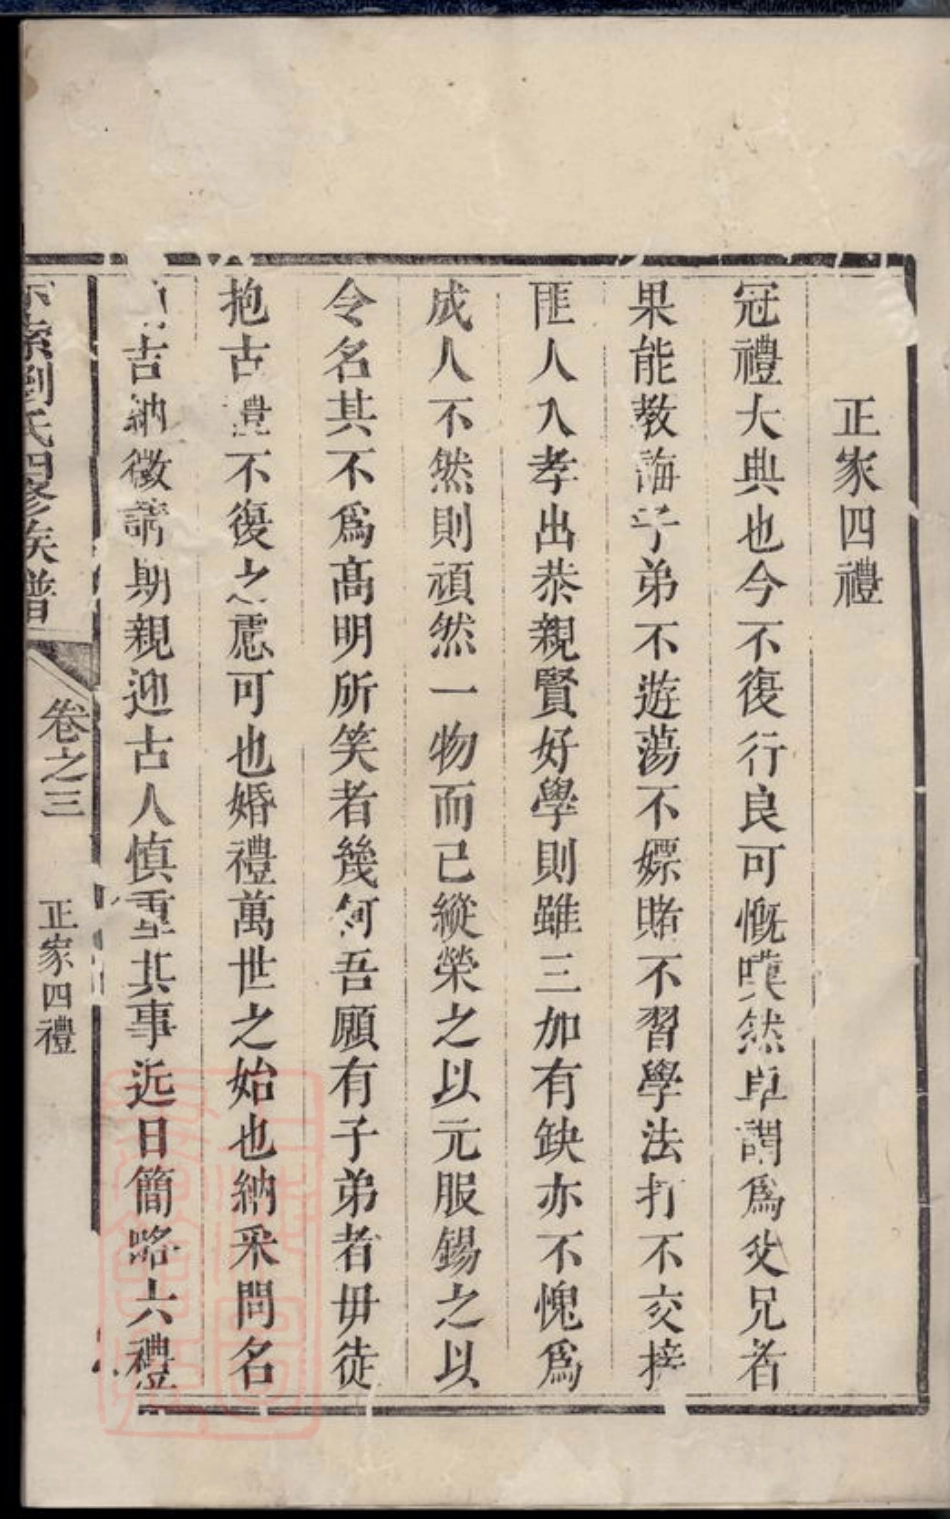 正家四禮
冠禮大典也今不復行良可慨嘆然卓謂爲父兄者
果能教誨子弟不遊蕩不嫖賭不習學法打不交接
匪人入孝出恭親賢好學則雖三加有缺亦不愧爲
成人不然則頑然一物而已縱榮之以元服錫之以
令名其不爲高明所笑者幾何吾願有子弟者毋徒
抱古禮不復之慮可也婚禮萬世之始也納采問名
吉納徵請期親迎古人慎重其事近日簡略六禮
劉氏四修族譜
卷之三
正家四禮